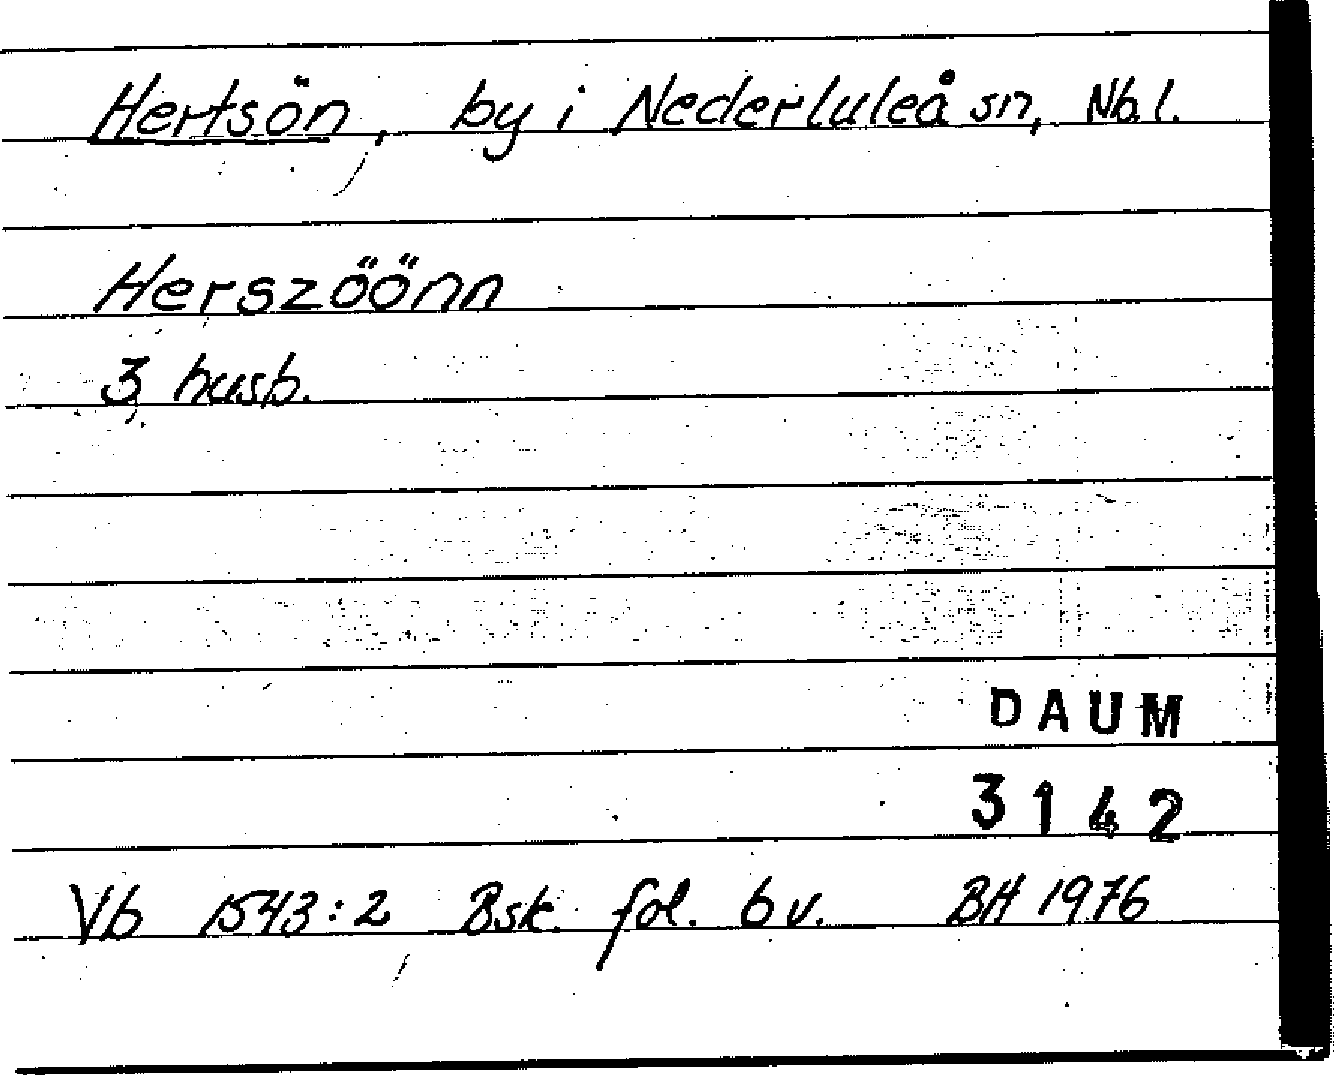 Hertsön, by i Nederluleå sn, Nb.l.
Herszöönn
3 husb.
DAUM
3142
Vb 1543:2 Bsk. fol. 6v. BH 1976